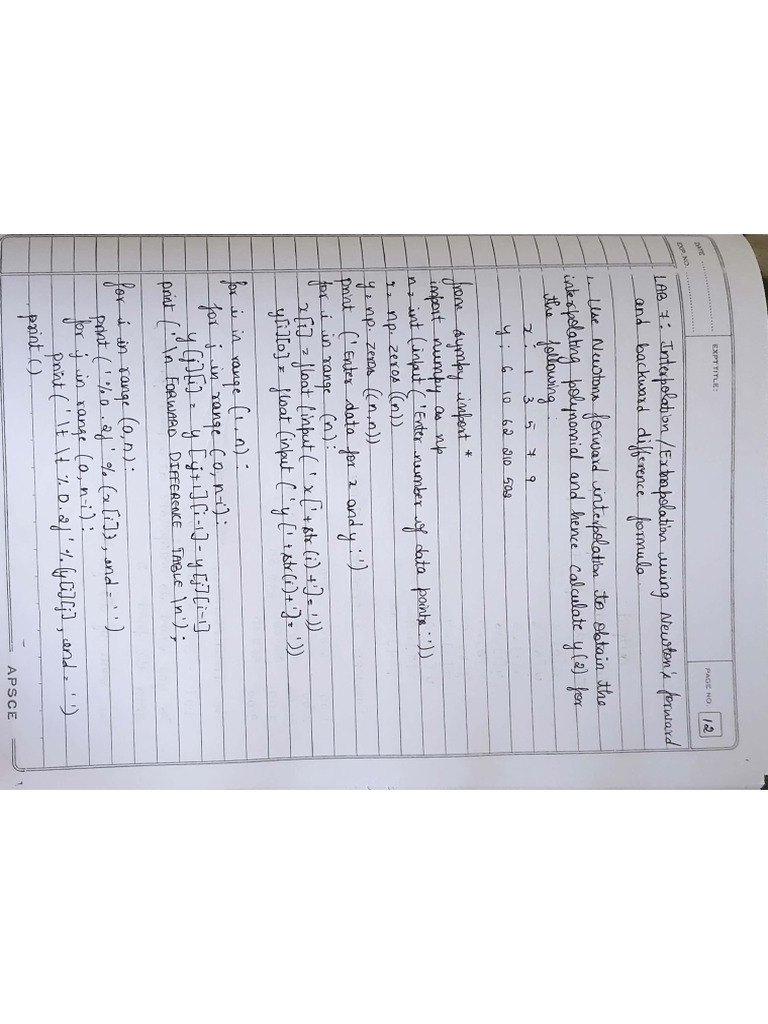 DATE :
EXP. NO.
EXPT TITLE :
PAGE NO. : 12
LAB 7 : Interpolation/Extrapolation using Newton's forward
and backward difference formula
1. Use Newtons forward interpolation to obtain the
interpolating polynomial and hence calculate y(2) for
the following :
x : 1 3 5 7 9
y : 6 10 62 210 502
from sympy import *
import numpy as np
n = int (input ('Enter number of data points : '))
x = np. zeros ((n))
y = np. zeros ((n,n))
print ('Enter data for x and y : ')
for i in range (n):
x[i] = float (input ( ' x[' + str(i) + ']= '))
y[i][0] = float (input ( 'y [' + str(i) + ']= '))
for i in range (1, n) :
for j in range (0, n-i):
y[j][i] = y [j+1][i-1] - y[j][i-1]
print ( '\n FORWARD DIFFERENCE TABLE \n') ;
for i in range (0,n):
print ( ' % 0.2f ' % (x[i]), end = ' ')
for j in range (0, n-i):
print ( ' \t \t % 0.2f ' % (y[i][j], end = ' ')
print ()
APSCE